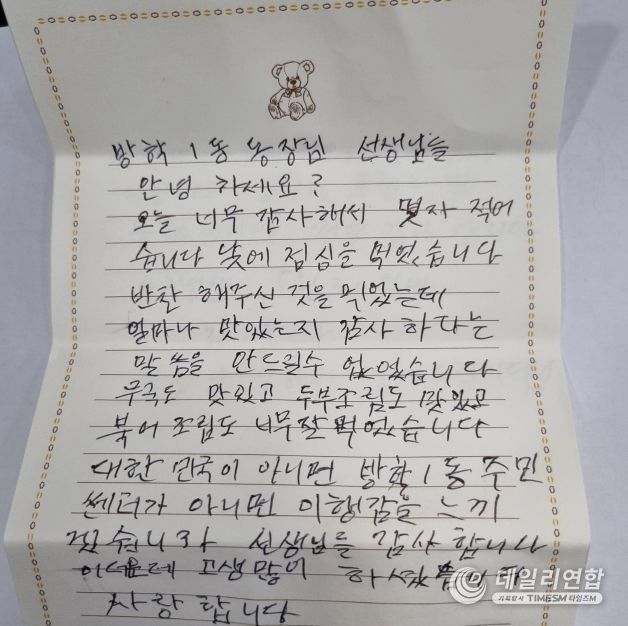 방학 1동 동장님 선생님들
안녕 하세요?
오늘 너무 감사해서 몇자 적어
습니다 낮에 점심을 먹었습니다
반찬 해주신 것을 먹었는데
얼마나 맛있는지 감사 하다는
말씀을 안드릴수 없었습니다
무국도 맛있고 두부조림도 맛있고
북어 조림도 너무잘 먹었습니다
대한 민국이 아니면 방학1동 주민
쎈터가 아니면 이행감을 느끼
선생님들 감사 합니다
고생많이
사랑 합니다
데일리연합
기획탐사 TIMESM 타임즈M